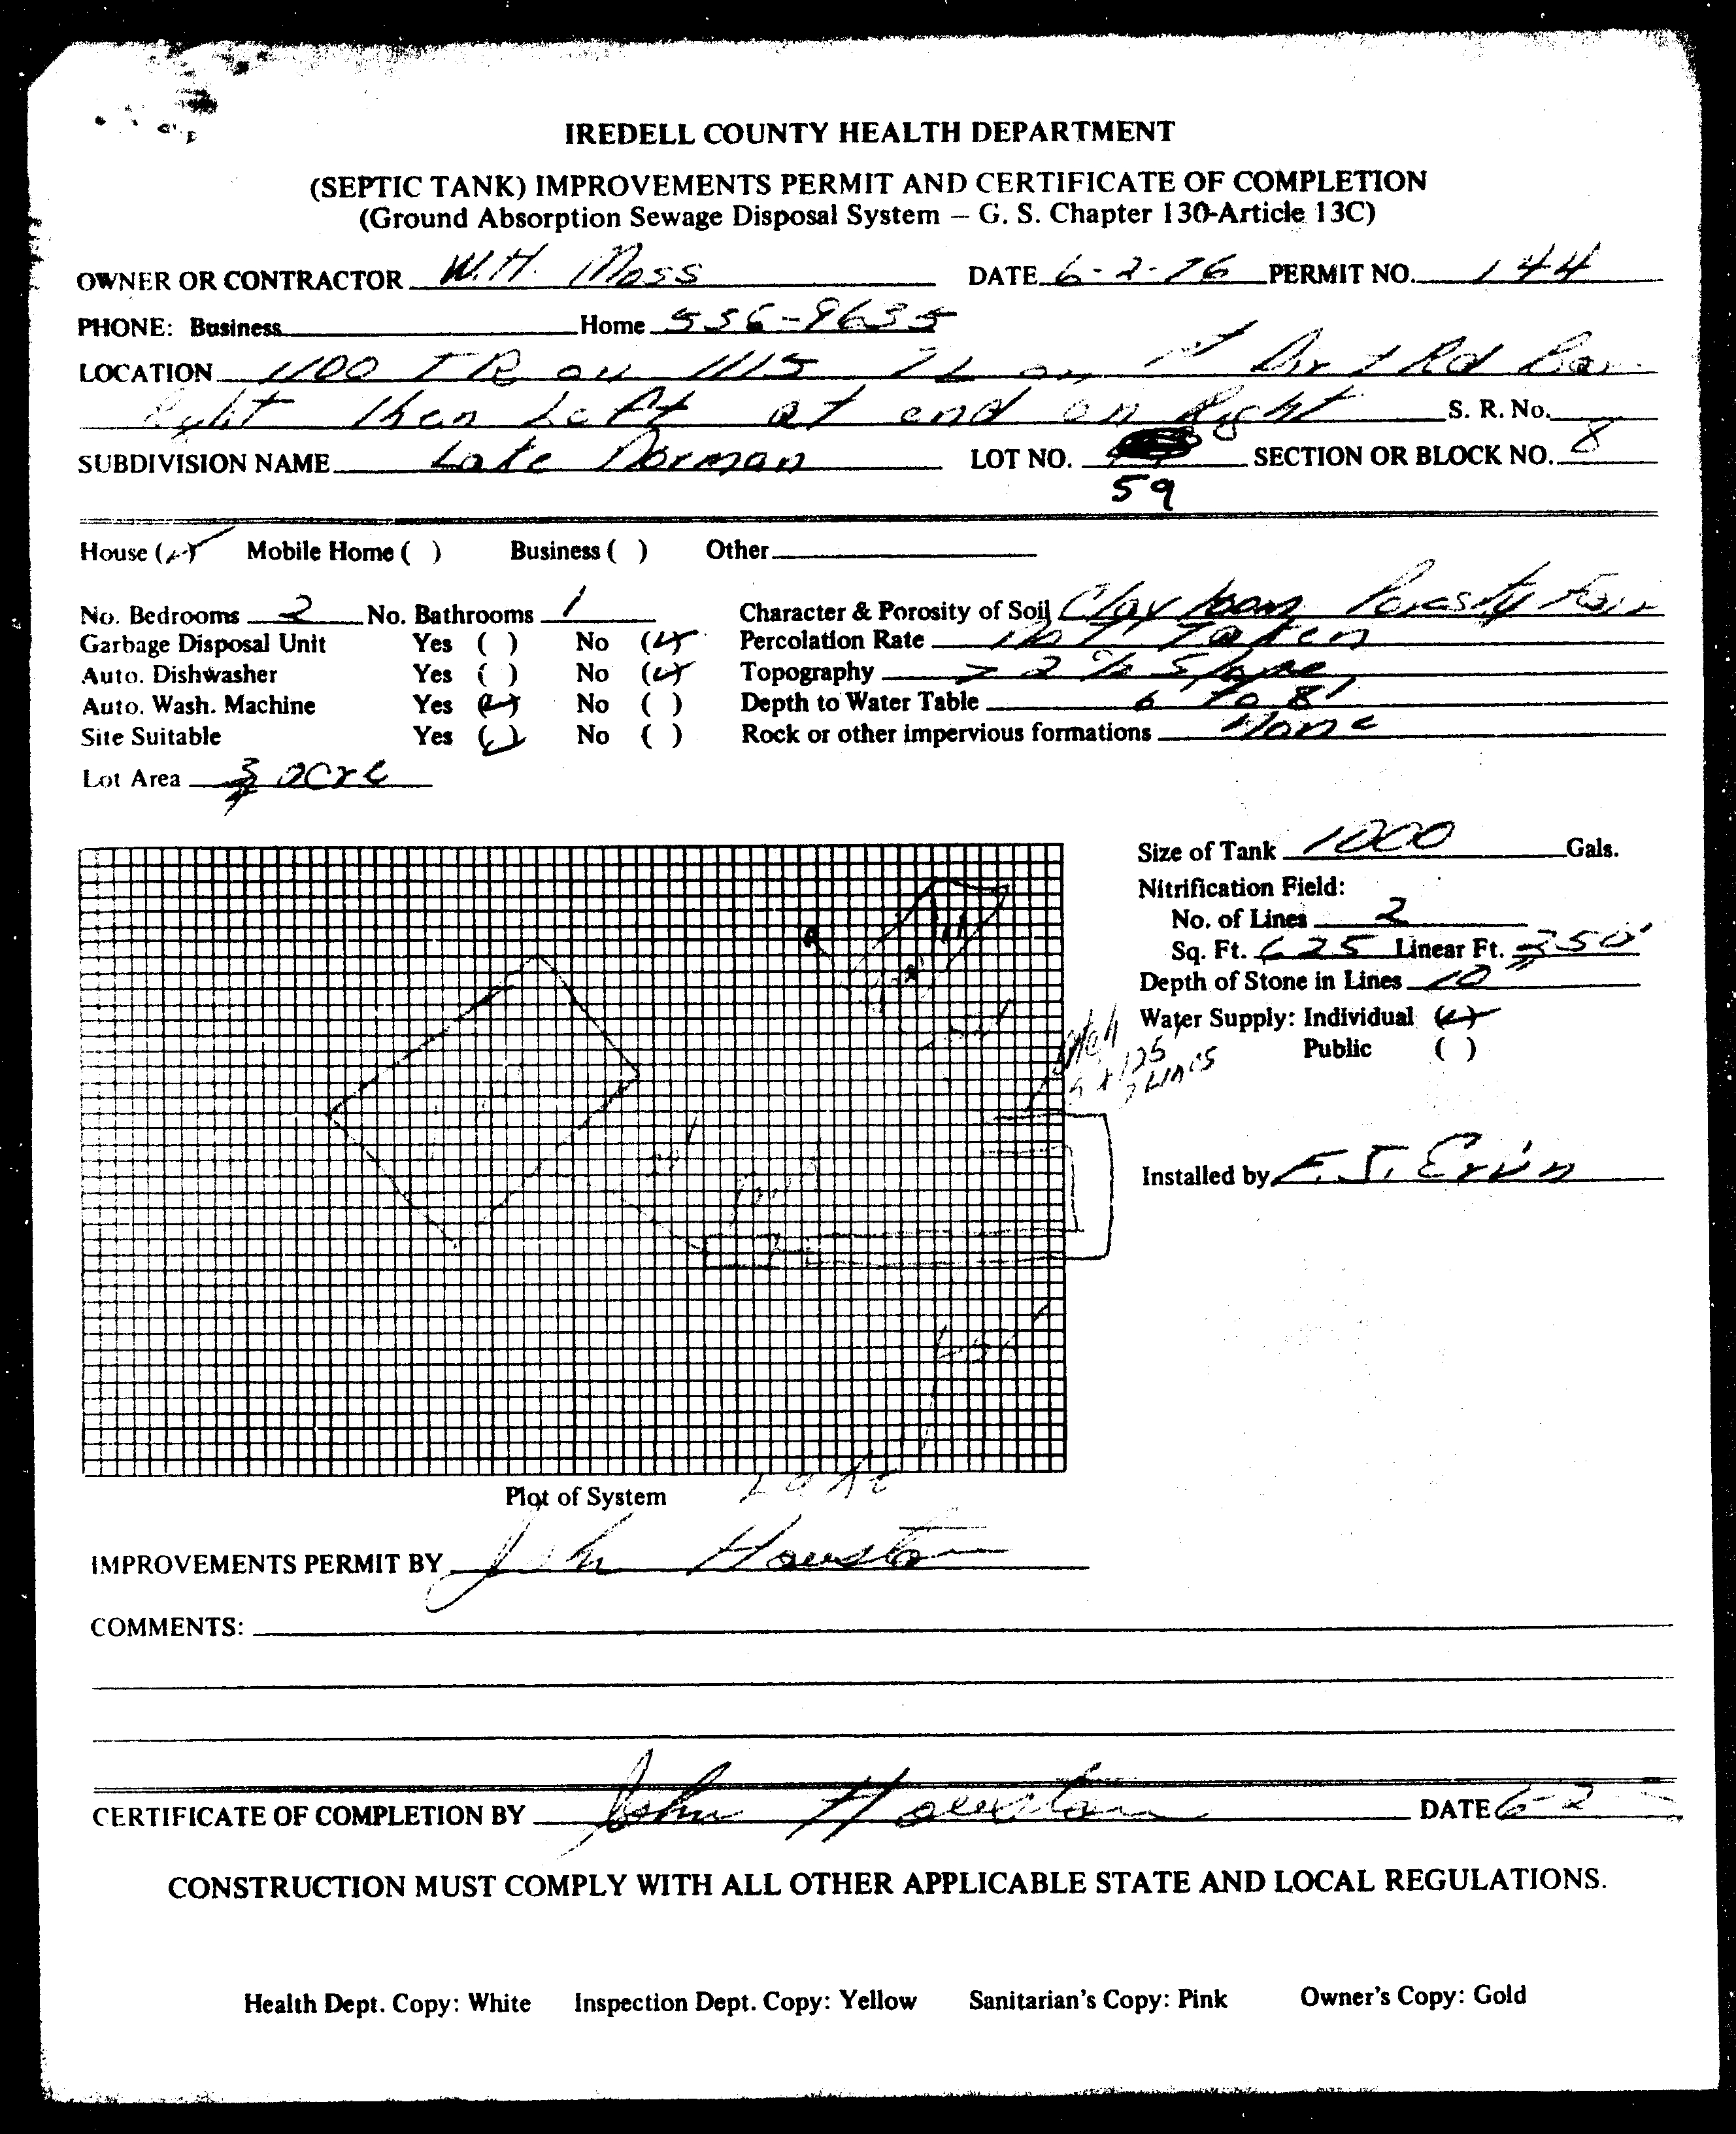 IREDELL COUNTY HEALTH DEPARTMENT
(SEPTIC TANK) IMPROVEMENTS PERMIT AND CERTIFICATE OF COMPLETION
(Ground Absorption Sewage Disposal System – G. S. Chapter 130-Article 13C)
OWNER OR CONTRACTOR W.H. Moss DATE 6-2-76 PERMIT NO. 144
PHONE: Business Home 556-9635
LOCATION 1100 TR on 1115 TL on 1st Dirt Rd Bear
Right then Left at end on Right S. R. No.
SUBDIVISION NAME Lake Norman LOT NO. 59 SECTION OR BLOCK NO. 8
House ( ) Mobile Home ( ) Business ( ) Other
No. Bedrooms 2 No. Bathrooms 1 Character & Porosity of Soil Clay loam Porosity Fair
Garbage Disposal Unit Yes ( ) No ( ) Percolation Rate Not Taken
Auto. Dishwasher Yes ( ) No ( ) Topography > 2 % Slope
Auto. Wash. Machine Yes ( ) No ( ) Depth to Water Table 6 To 8'
Site Suitable Yes ( ) No ( ) Rock or other impervious formations None
Lot Area 3/4 acre
Size of Tank 1000 Gals.
Nitrification Field:
No. of Lines 2
Sq. Ft. 625 Linear Ft. 250'
Depth of Stone in Lines 10"
Water Supply: Individual ( )
Public ( )
125
2 LINES
Installed by F. J. Ervin
Lake
Plot of System
IMPROVEMENTS PERMIT BY John Houston
COMMENTS:
CERTIFICATE OF COMPLETION BY John Houston DATE 6-2
CONSTRUCTION MUST COMPLY WITH ALL OTHER APPLICABLE STATE AND LOCAL REGULATIONS.
Health Dept. Copy: White Inspection Dept. Copy: Yellow Sanitarian's Copy: Pink Owner's Copy: Gold